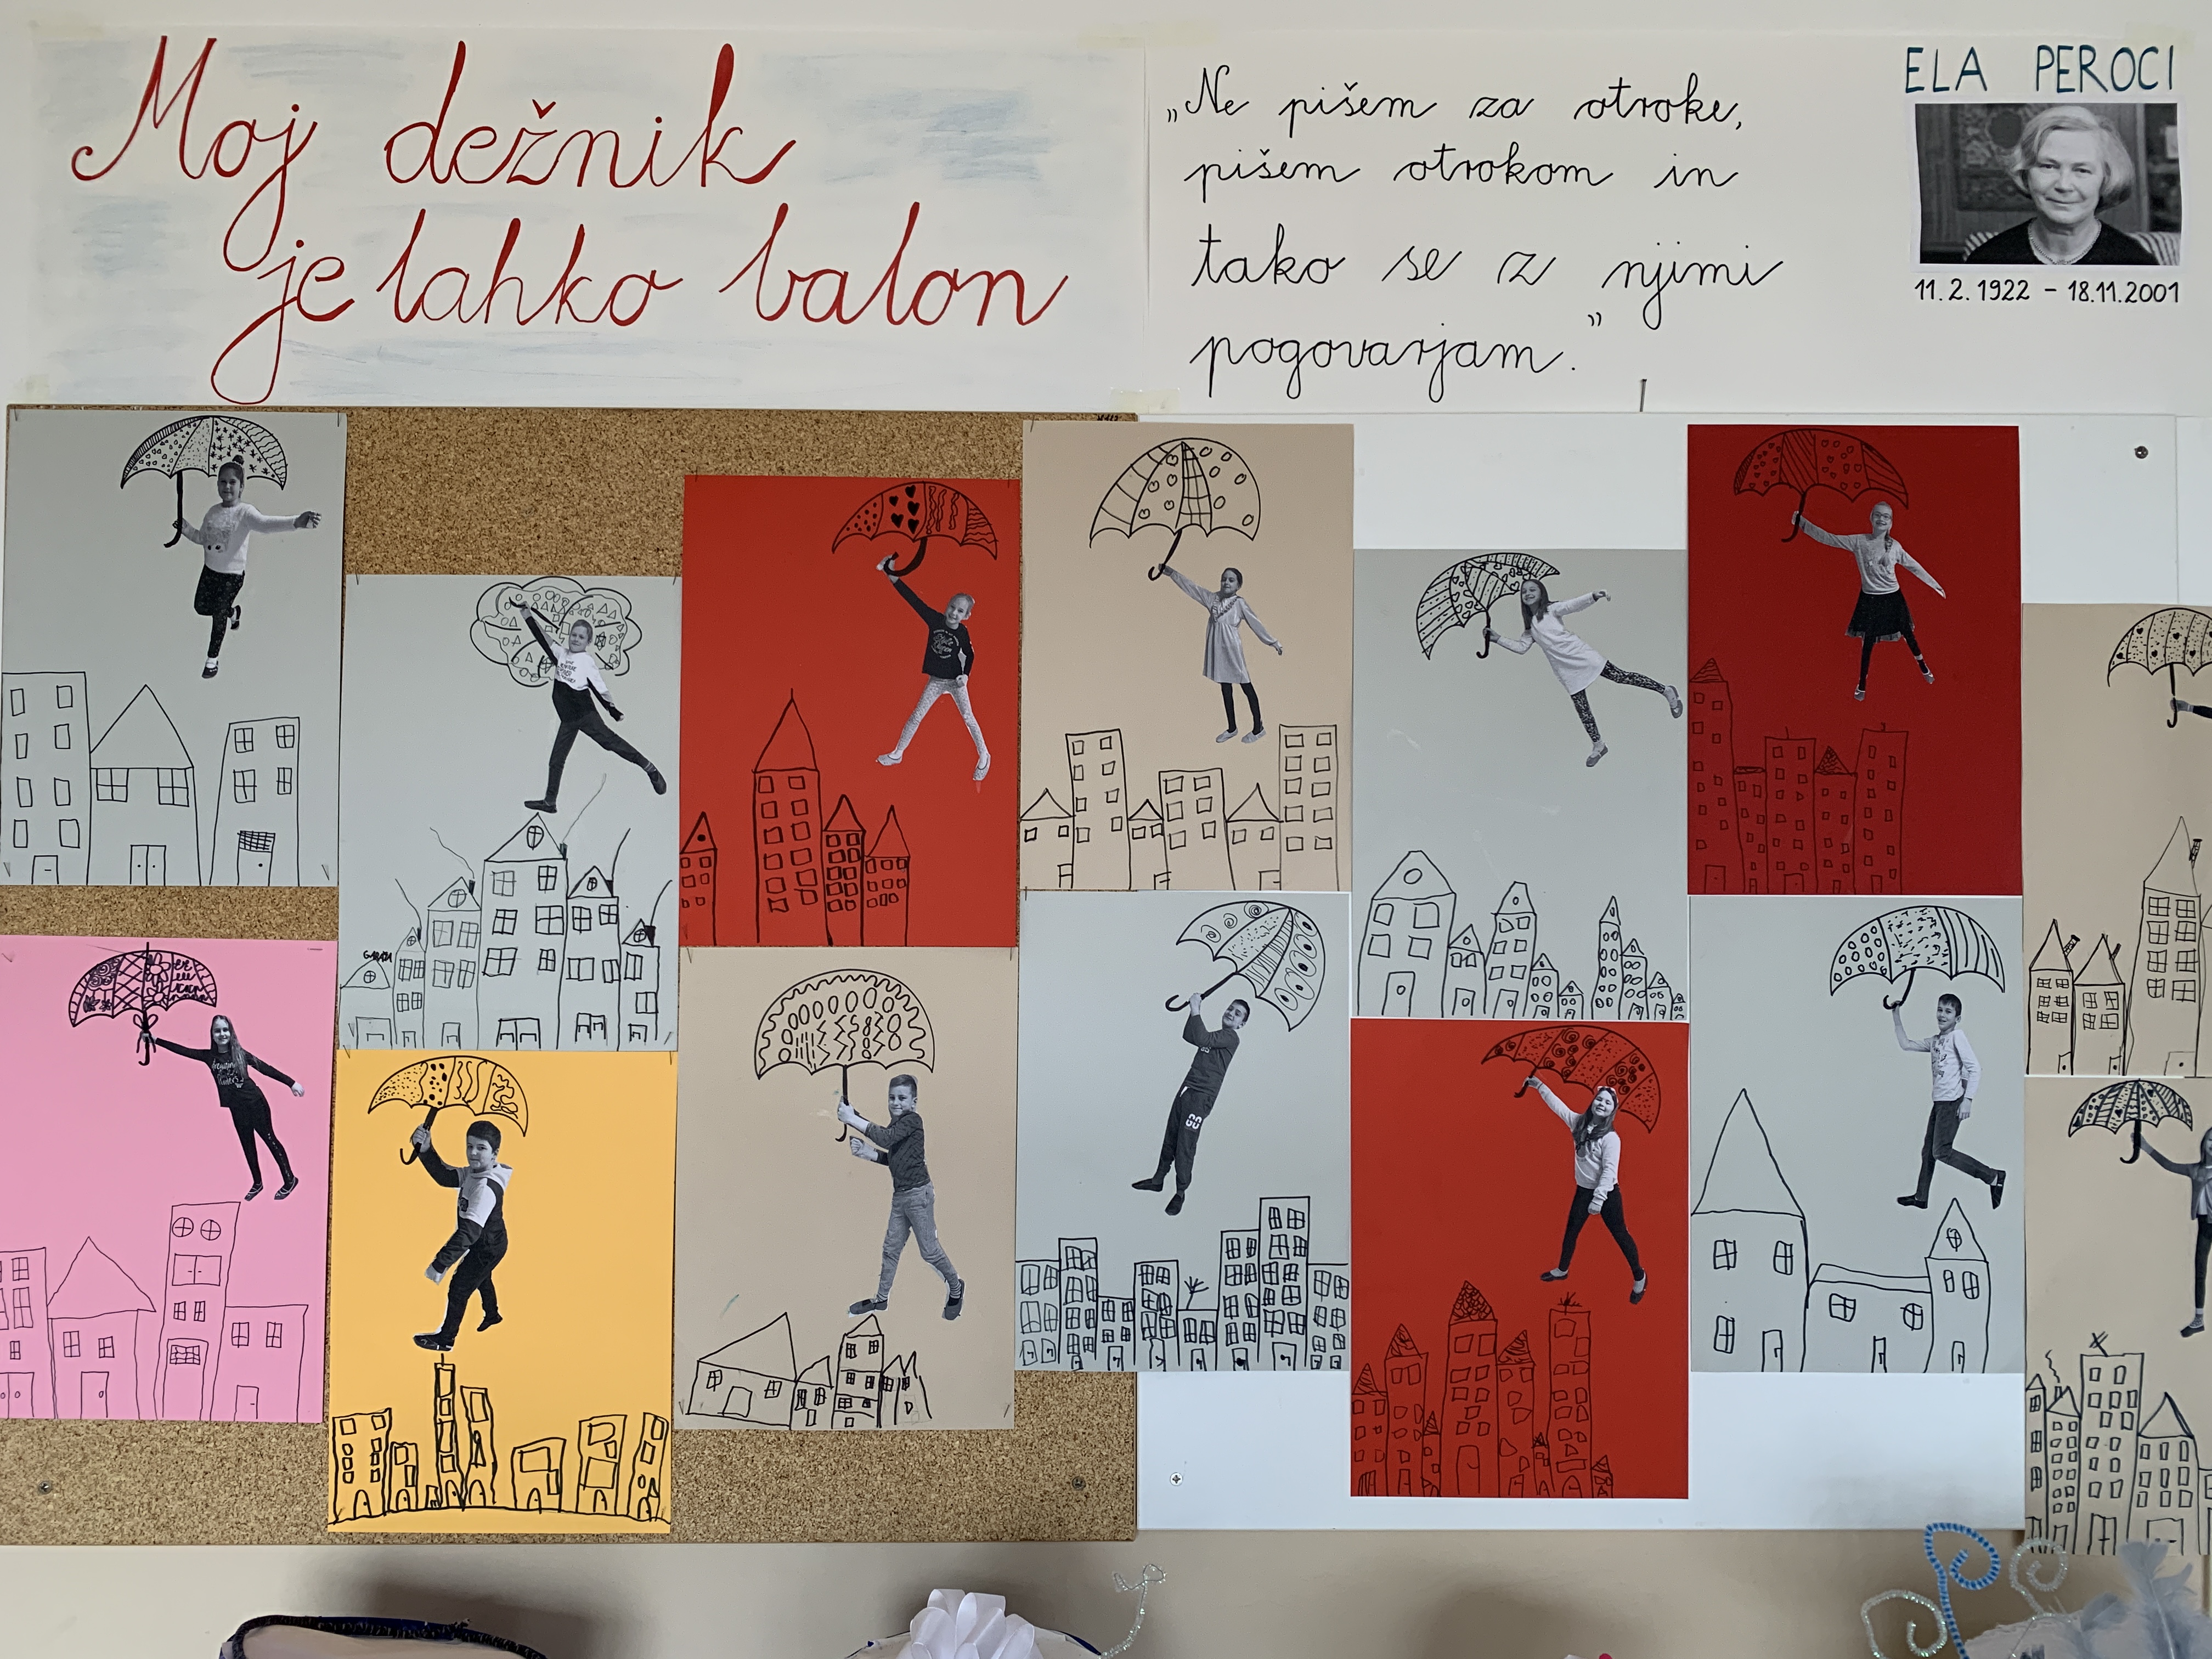 Moj dežnik
je lahko balon
„Ne pišem za otroke,
pišem otrokom in
tako se z njimi
pogovarjam.”
ELA PEROCI
11. 2. 1922 - 18.11.2001
GO